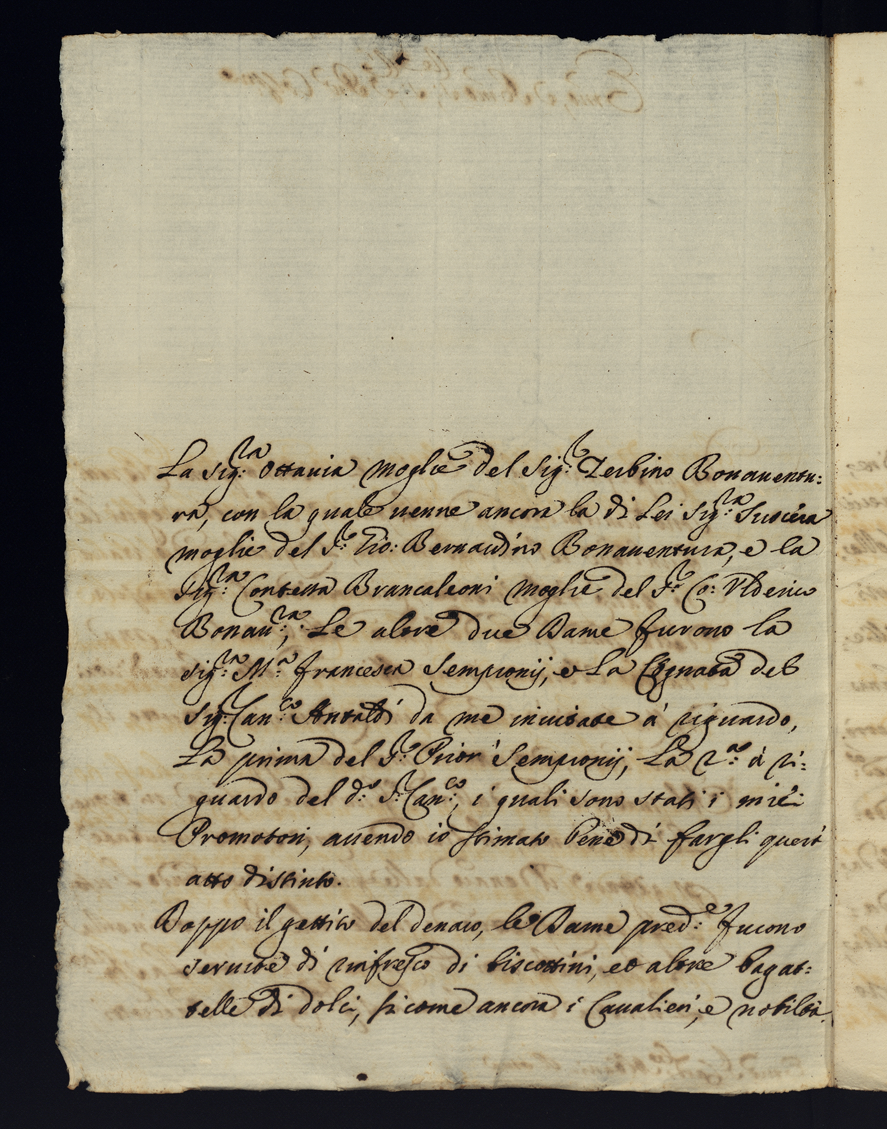 La Sig:ra Ottavia moglie del Sig:r Zerbino Bonaventu:
ra, con la quale venne ancora la di Lei Sig:ra Suocera
moglie del S:r Gio: Bernardino Bonaventura, e la
Sig:ra Contessa Brancaleoni moglie del S:r Co: Vlderico
Bonau:ra; Le altre due Dame furono la
Sig:ra M:a Francesca Sempronij, e La Cognata del
Sig:r Can:co Antaldi da me invitate à riguardo,
La prima del S:r Prior Sempronij, La 2:a à ri:
guardo del d:o S:r Can:co, i quali sono stati i miei
Promotori, auendo io stimato bene di fargli quest'
atto distinto.
Doppo il gettito del denaro, le Dame pred:e furono
seruite di rinfresco di biscottini, et altre bagat:
telle di dolci, si come ancora i Caualieri, e nobiltà.